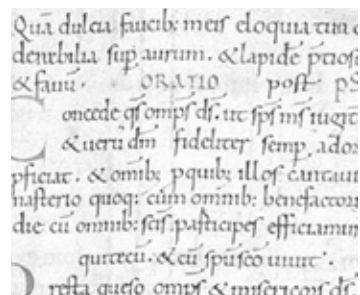 Quā dulcia faucib; meis eloquia tua
derabilia sup aurum. & lapidē p̄tios
& fauū. ORATIO post PS
Concede qs omps ds. ut sps ms iugit
& uerū dm̄ fideliter semp ador
pficiat. & omib; p quib; illos cantaui
nasterio quoq; cum omnib; benefactori
die cū omnib; scīs. participes efficiamur
qui tecū. & cū spū sco uiuit.
resta queso omps & misericors ds.